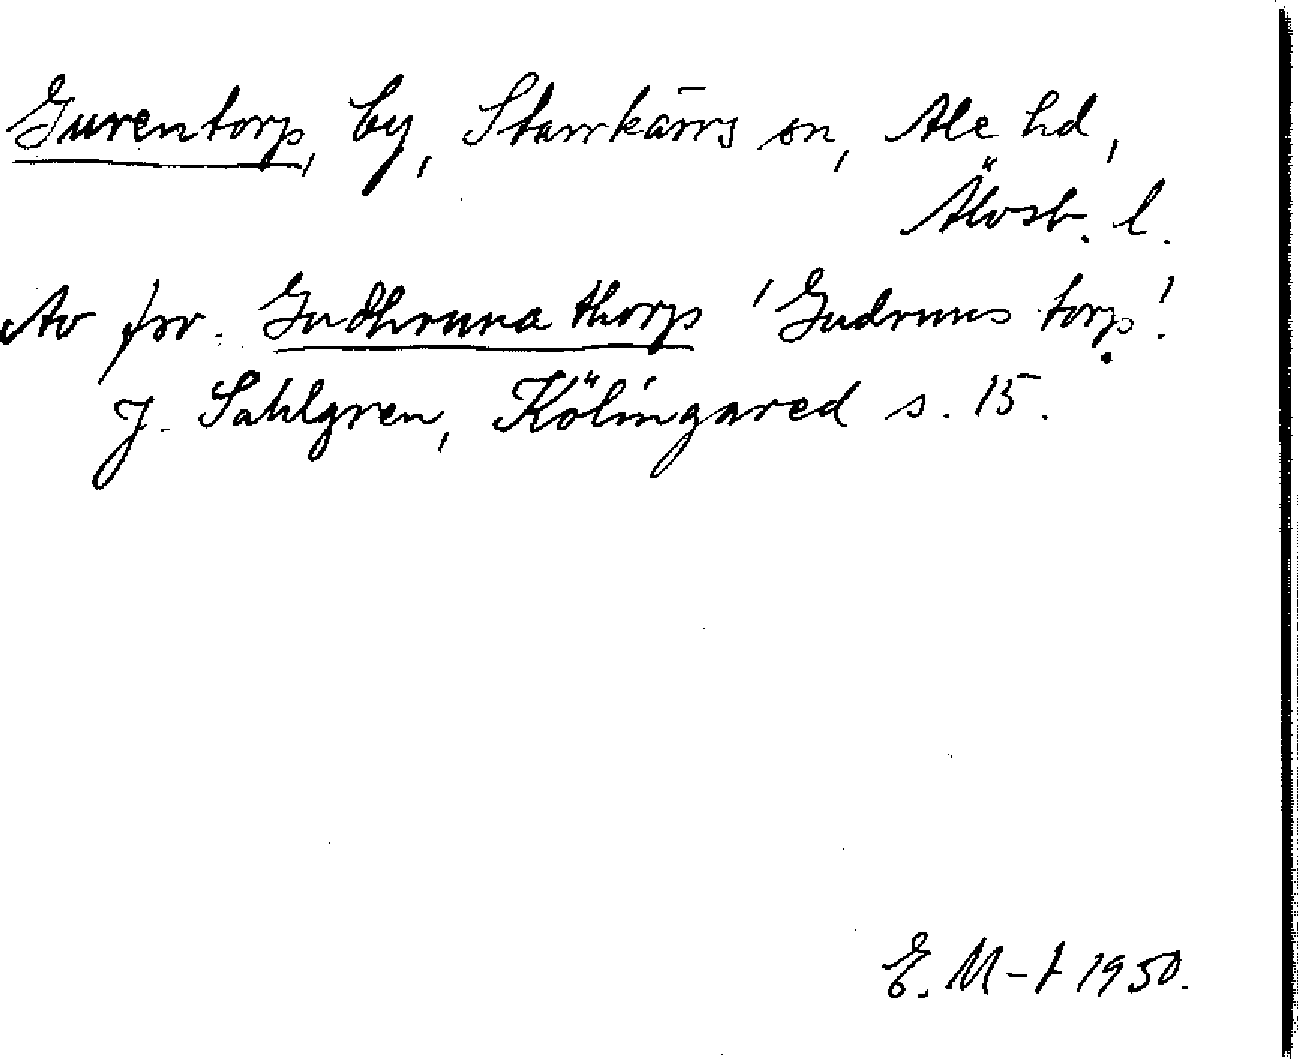 Gurentorp, by, Starrkärrs sn, Ale hd,
Älvsb. l.
Av fsv. Gudhruna thorp 'Gudruns torp'.
J. Sahlgren, Kölingared s. 15.
E. M-t 1950.